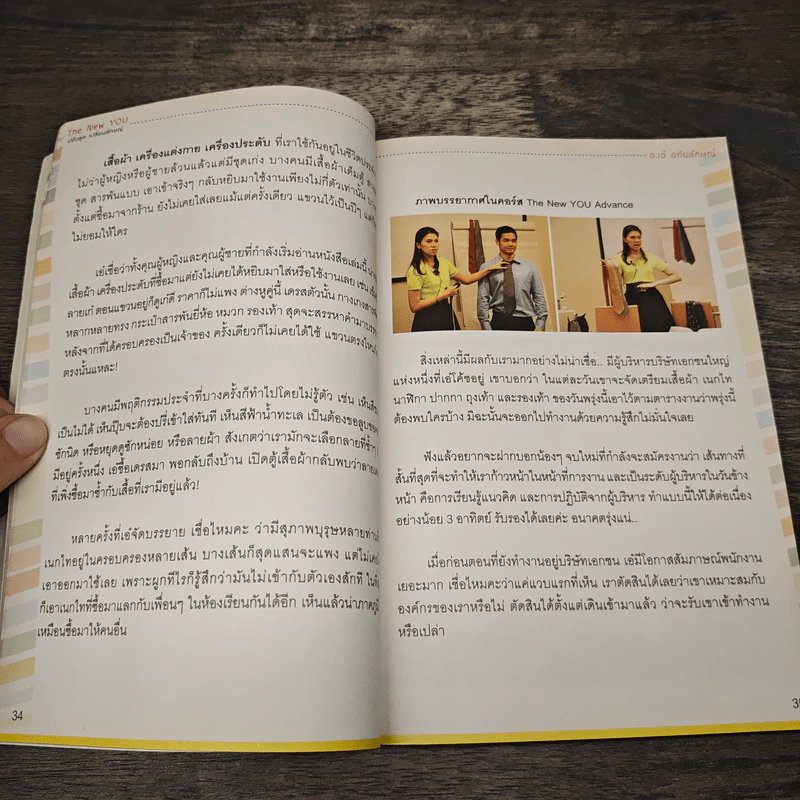 The New YOU
ปรับลุค เปลี่ยนลักษณ์
เสื้อผ้า เครื่องแต่งกาย เครื่องประดับ ที่เราใช้กันอยู่ในชีวิตประจำ
ไม่ว่าผู้หญิงหรือผู้ชายล้วนแล้วแต่มีชุดเก่ง บางคนมีเสื้อผ้าเต็มตู้
ชุด สารพันแบบ เอาเข้าจริงๆ กลับหยิบมาใช้งานเพียงไม่กี่ตัวเท่านั้น
ตั้งแต่ซื้อมาจากร้าน ยังไม่เคยใส่เลยแม้แต่ครั้งเดียว แขวนไว้เป็นปีๆ
ไม่ยอมให้ใคร
เอ้เชื่อว่าทั้งคุณผู้หญิงและคุณผู้ชายที่กำลังเริ่มอ่านหนังสือเล่มนี้
เสื้อผ้า เครื่องประดับที่ซื้อมาแต่ยังไม่เคยได้หยิบมาใส่หรือใช้งานเลย เช่น
ลายเก๋ ตอนแขวนอยู่ก็ดูเก๋ดี ราคาก็ไม่แพง ต่างหูคู่นี้ เดรสตัวนั้น กางเกง
หลากหลายทรง กระเป๋าสารพันยี่ห้อ หมวก รองเท้า สุดจะสรรหาคำมา
หลังจากที่ได้ครอบครองเป็นเจ้าของ ครั้งเดียวก็ไม่เคยได้ใช้ แขวนตรงไหน
ตรงนั้นแหละ!
บางคนมีพฤติกรรมประจำที่บางครั้งก็ทำไปโดยไม่รู้ตัว เช่น เห็น
เป็นไม่ได้ เห็นปุ๊บจะต้องปรี่เข้าใส่ทันที เห็นสีฟ้าน้ำทะเล เป็นต้องขอลูบ
ซักนิด หรือหยุดดูซักหน่อย หรือลายผ้า สังเกตว่าเรามักจะเลือกลายที่ซ้ำๆ
มีอยู่ครั้งหนึ่ง เอ้ซื้อเดรสมา พอกลับถึงบ้าน เปิดตู้เสื้อผ้ากลับพบว่า
ที่เพิ่งซื้อมาซ้ำกับเสื้อที่เรามีอยู่แล้ว!
หลายครั้งที่เอ้จัดบรรยาย เชื่อไหมคะ ว่ามีสุภาพบุรุษหลายท่าน
เนกไทอยู่ในครอบครองหลายเส้น บางเส้นก็สุดแสนจะแพง แต่ไม่เคย
เอาออกมาใช้เลย เพราะผูกทีไรก็รู้สึกว่ามันไม่เข้ากับตัวเองสักที
ก็เอาเนกไทที่ซื้อมาแลกกับเพื่อนๆ ในห้องเรียนกันได้อีก เห็นแล้วน่าภาคภูมิ
เหมือนซื้อมาให้คนอื่น
34
อ.เอ้ อภัยลักษณ์
ภาพบรรยากาศในคอร์ส The New YOU Advance
สิ่งเหล่านี้มีผลกับเรามากอย่างไม่น่าเชื่อ.. มีผู้บริหารบริษัทเอกชนใหญ่
แห่งหนึ่งที่เอ้โค้ชอยู่ เขาบอกว่า ในแต่ละวันเขาจะจัดเตรียมเสื้อผ้า เนกไท
นาฬิกา ปากกา ถุงเท้า และรองเท้า ของวันพรุ่งนี้เอาไว้ตามตารางงานว่าพรุ่งนี้
ต้องพบใครบ้าง มิฉะนั้นจะออกไปทำงานด้วยความรู้สึกไม่มั่นใจเลย
ฟังแล้วอยากจะฝากบอกน้องๆ จบใหม่ที่กำลังจะสมัครงานว่า เส้นทางที่
สั้นที่สุดที่จะทำให้เราก้าวหน้าในหน้าที่การงาน และเป็นระดับผู้บริหารในวันข้าง
หน้า คือการเรียนรู้แนวคิด และการปฏิบัติจากผู้บริหาร ทำแบบนี้ให้ได้ต่อเนื่อง
อย่างน้อย 3 อาทิตย์ รับรองได้เลยค่ะ อนาคตรุ่งแน่..
เมื่อก่อนตอนที่ยังทำงานอยู่บริษัทเอกชน เอ้มีโอกาสสัมภาษณ์พนักงาน
เยอะมาก เชื่อไหมคะว่าแค่แวบแรกที่เห็น เราตัดสินได้เลยว่าเขาเหมาะสมกับ
องค์กรของเราหรือไม่ ตัดสินได้ตั้งแต่เดินเข้ามาแล้ว ว่าจะรับเขาเข้าทำงาน
หรือเปล่า